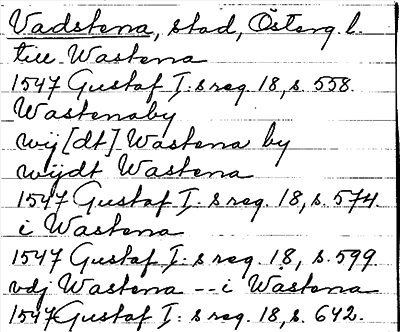 Vadstena, stad, Österg l.
till Wastena
1547 Gustaf I:s reg. 18, s. 558.
Wastenaby
wij[dt] Wastena by
wijdt Wastena
1547 Gustaf I:s reg. 18, s. 574
i Wastena
1547 Gustaf I:s reg. 18, s. 599
vdj Wastena -- i Wastena
1547 Gustaf I:s reg. 18, s. 642.